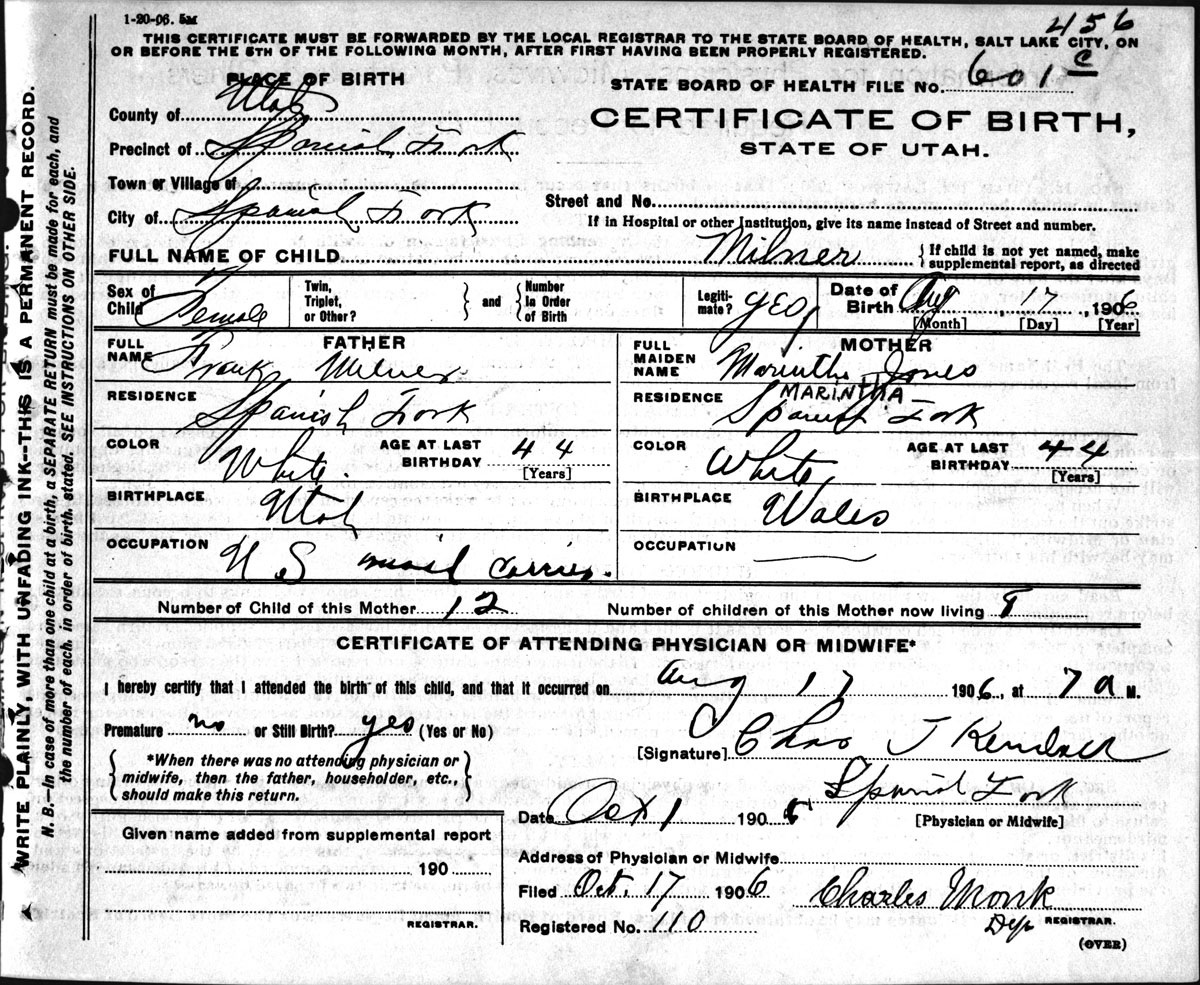 1-20-06. 5M
456
THIS CERTIFICATE MUST BE FORWARDED BY THE LOCAL REGISTRAR TO THE STATE BOARD OF HEALTH, SALT LAKE CITY, ON
OR BEFORE THE 5TH OF THE FOLLOWING MONTH, AFTER FIRST HAVING BEEN PROPERLY REGISTERED.
PLACE OF BIRTH
STATE BOARD OF HEALTH FILE NO. 601 C
County of Utah
CERTIFICATE OF BIRTH,
Precinct of Spanish Fork
STATE OF UTAH.
Town or Village of
Street and No.
City of Spanish Fork
If in Hospital or other Institution, give its name instead of Street and number.
FULL NAME OF CHILD Milner { If child is not yet named, make supplemental report, as directed
Sex of Child Female Twin, Triplet, or Other? } and { Number In Order of Birth Legiti-mate? yes Date of Birth Aug 17, 1906
[Month] [Day] [Year]
FATHER
FULL NAME Frank Milner
RESIDENCE Spanish Fork
COLOR White AGE AT LAST BIRTHDAY 44 [Years]
BIRTHPLACE Utah
OCCUPATION U S mail carrier.
MOTHER
FULL MAIDEN NAME Marintha Jones
MARINTHA
RESIDENCE Spanish Fork
COLOR White AGE AT LAST BIRTHDAY 44 [Years]
BIRTHPLACE Wales
OCCUPATION
Number of Child of this Mother 12 Number of children of this Mother now living
CERTIFICATE OF ATTENDING PHYSICIAN OR MIDWIFE*
I hereby certify that I attended the birth of this child, and that it occurred on Aug 17 1906, at 7 a M.
Premature no or Still Birth? yes (Yes or No)
[Signature] Chas J
*When there was no attending physician or
midwife, then the father, householder, etc.,
should make this return.
Spanish Fork
[Physician or Midwife]
Date Oct 1 1906
Given name added from supplemental report
190
REGISTRAR.
Address of Physician or Midwife
Filed Oct. 17 1906 Charles Monk
Dep REGISTRAR.
Registered No. 110
(OVER)
WRITE PLAINLY, WITH UNFADING INK--THIS IS A PERMANENT RECORD.
N. B.—In case of more than one child at a birth, a SEPARATE RETURN must be made for each, and
the number of each, in order of birth, stated. SEE INSTRUCTIONS ON OTHER SIDE.